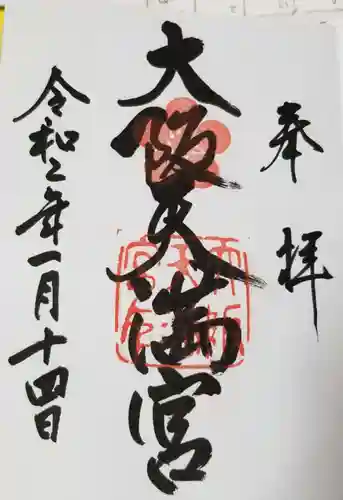 奉拝
大阪天満宮
令和二年一月十四日